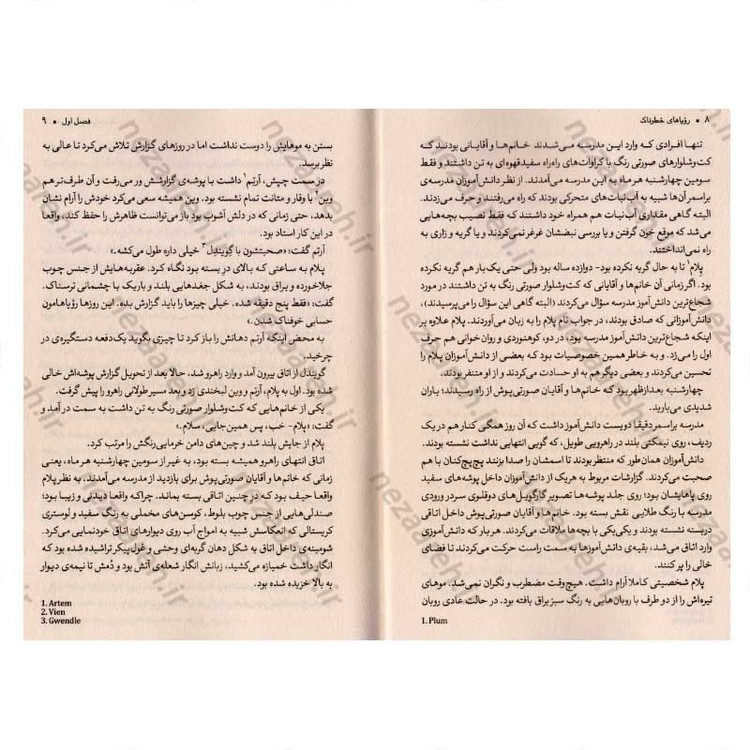 ۸ ● رؤیاهای خطرناک
تنها افرادی که وارد این مدرسه می‌شدند خانم‌ها و آقایانی بودند که
کت‌وشلوارهای صورتی رنگ با کراوات‌های راه‌راه سفیدقهوه‌ای به تن داشتند و فقط
سومین چهارشنبه هر ماه به این مدرسه می‌آمدند. از نظر دانش‌آموزان مدرسه‌ی
براسمر آن‌ها شبیه به آب‌نبات‌های متحرکی بودند که راه می‌رفتند و حرف می‌زدند.
البته گاهی مقداری آب‌نبات هم همراه خود داشتند که فقط نصیب بچه‌هایی
می‌شد که موقع خون گرفتن و یا بررسی نبضشان غرغر نمی‌کردند و یا گریه و زاری به
راه نمی‌انداختند.
پلام۱ تا به حال گریه نکرده بود- دوازده ساله بود ولی حتی یک بار هم گریه نکرده
بود. اگر زمانی آن خانم‌ها و آقایانی که کت‌وشلوار صورتی رنگ به تن داشتند در مورد
شجاع‌ترین دانش‌آموز مدرسه سؤال می‌کردند (البته گاهی این سؤال را می‌پرسیدند)،
دانش‌آموزانی که صادق بودند، در جواب نام پلام را به زبان می‌آوردند. پلام علاوه بر
اینکه شجاع‌ترین دانش‌آموز مدرسه بود، در دو، کوهنوردی و روان خوانی هم حرف
اول را می‌زد. و به خاطر همین خصوصیات بود که بعضی از دانش‌آموزان پلام را
تحسین می‌کردند و بعضی دیگر هم به او حسادت می‌کردند و از او متنفر بودند.
چهارشنبه بعدازظهر بود که خانم‌ها و آقایان صورتی‌پوش از راه رسیدند؛ باران
شدیدی می‌بارید.
مدرسه براسمر دقیقا دویست دانش‌آموز داشت که آن روز همگی کنار هم در یک
ردیف، روی نیمکتی بلند در راهرویی طویل، که گویی انتهایی نداشت نشسته بودند.
دانش‌آموزان همان‌طور که منتظر بودند تا اسمشان را صدا بزنند پچ‌پچ‌کنان با هم
صحبت می‌کردند. گزارشات مربوط به هر یک از دانش‌آموزان داخل پوشه‌های سفید
روی پاهایشان بود؛ روی جلد پوشه‌ها تصویر گارگویل‌های دوقلوی سردر ورودی
مدرسه با رنگ طلایی نقش بسته بود. خانم‌ها و آقایان صورتی‌پوش داخل اتاقی
دربسته نشسته بودند و یکی‌یکی با بچه‌ها ملاقات می‌کردند. هر بار که دانش‌آموزی
وارد اتاق می‌شد، بقیه‌ی دانش‌آموزها به سمت راست حرکت می‌کردند تا فضای
خالی را پر کنند.
پلام شخصیتی کاملا آرام داشت. هیچ‌وقت مضطرب و نگران نمی‌شد. موهای
تیره‌اش را از دو طرف با روبان‌هایی به رنگ سبز براق بافته بود. در حالت عادی روبان
1. Plum
فصل اول ● ۹
بستن به موهایش را دوست نداشت اما در روزهای گزارش تلاش می‌کرد تا عالی به
نظر برسد.
در سمت چپش، آرتم۱ داشت با پوشه‌ی گزارشش ور می‌رفت و آن طرف‌تر هم
وین۲ با وقار و متانت تمام نشسته بود. وین همیشه سعی می‌کرد خودش را آرام نشان
بدهد، حتی زمانی که در دلش آشوب بود باز می‌توانست ظاهرش را حفظ کند، واقعا
در این کار استاد بود.
آرتم گفت: «صحبتشون با گویندل۳ خیلی داره طول می‌کشه.»
پلام به ساعتی که بالای در بسته بود نگاه کرد. عقربه‌هایش از جنس چوب
جلاخورده و براق بودند، به شکل جغدهایی بلند و باریک با چشمانی ترسناک.
گفت: «فقط پنج دقیقه شده. خیلی چیزها را باید گزارش بده. این روزها رؤیاهامون
حسابی خوفناک شدن.»
به محض اینکه آرتم دهانش را باز کرد تا چیزی بگوید یک‌دفعه دستگیره‌ی در
چرخید.
گویندل از اتاق بیرون آمد و وارد راهرو شد، حالا بعد از تحویل گزارش پوشه‌اش خالی
شده بود. اول به پلام، آرتم و وین لبخندی زد و بعد مسیر طولانی راهرو را پیش گرفت.
یکی از خانم‌هایی که کت‌وشلوار صورتی رنگ به تن داشت به سمت در آمد و
گفت: «پلام- خب، پس همین‌جایی، سلام.»
پلام از جایش بلند شد و چین‌های دامن خرمایی‌رنگش را مرتب کرد.
اتاق انتهای راهرو همیشه بسته بود، به غیر از سومین چهارشنبه هر ماه، یعنی
زمانی که خانم‌ها و آقایان صورتی‌پوش برای بازدید از مدرسه می‌آمدند. به نظر پلام
واقعا حیف بود که در چنین اتاقی بسته بماند. چراکه واقعا دیدنی و زیبا بود؛
صندلی‌هایی از جنس چوب بلوط، کوسن‌های مخملی به رنگ سفید و لوستری
کریستالی که انعکاسش شبیه به امواج آب روی دیوارهای اتاق خودنمایی می‌کرد.
شومینه‌ی داخل اتاق به شکل دهان گربه‌ای وحشی و غول‌پیکر تراشیده شده بود که
انگار داشت خمیازه می‌کشید، زبانش انگار شعله‌ی آتش بود و دُمش تا نیمه‌ی دیوار
به بالا خزیده شده بود.
1. Artem
2. Vien
3. Gwendle
nezaareh.ir